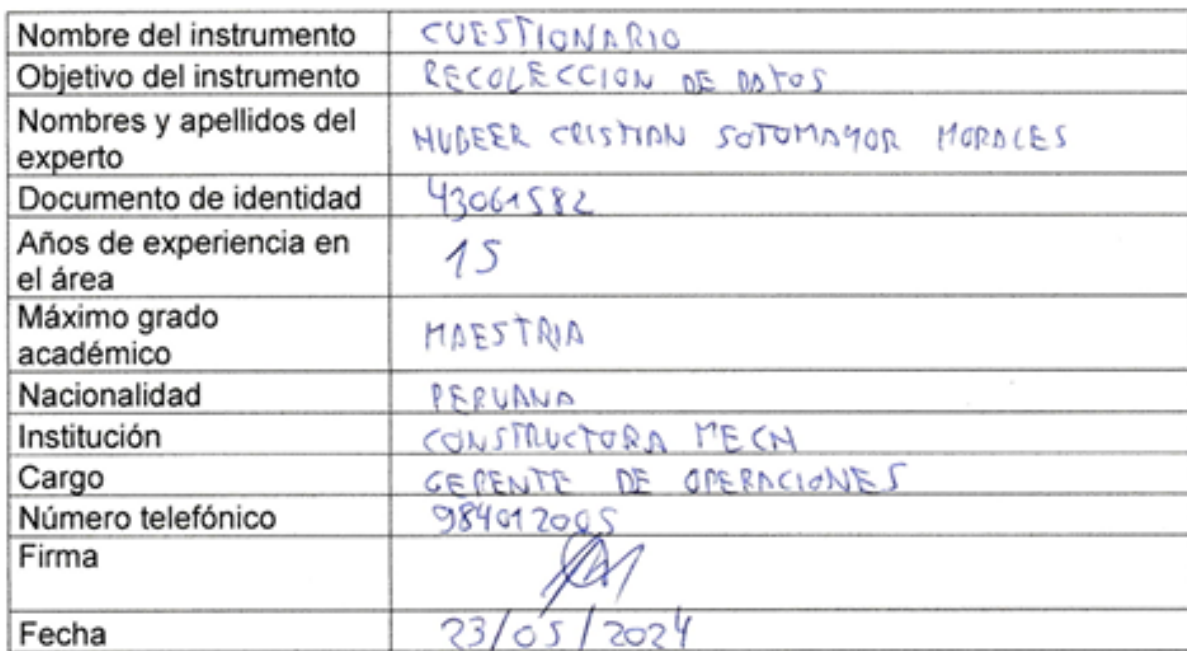 Nombre del instrumento CUESTIONARIO
Objetivo del instrumento RECOLECCION DE DATOS
Nombres y apellidos del
experto HUBEER CRISTIAN SOTOMAYOR MORALES
Documento de identidad 43061582
Años de experiencia en
el área 15
Máximo grado
académico MAESTRIA
Nacionalidad PERUANA
Institución CONSTRUCTORA MECH
Cargo GERENTE DE OPERACIONES
Número telefónico 984012005
Firma
Fecha 23/05/2024